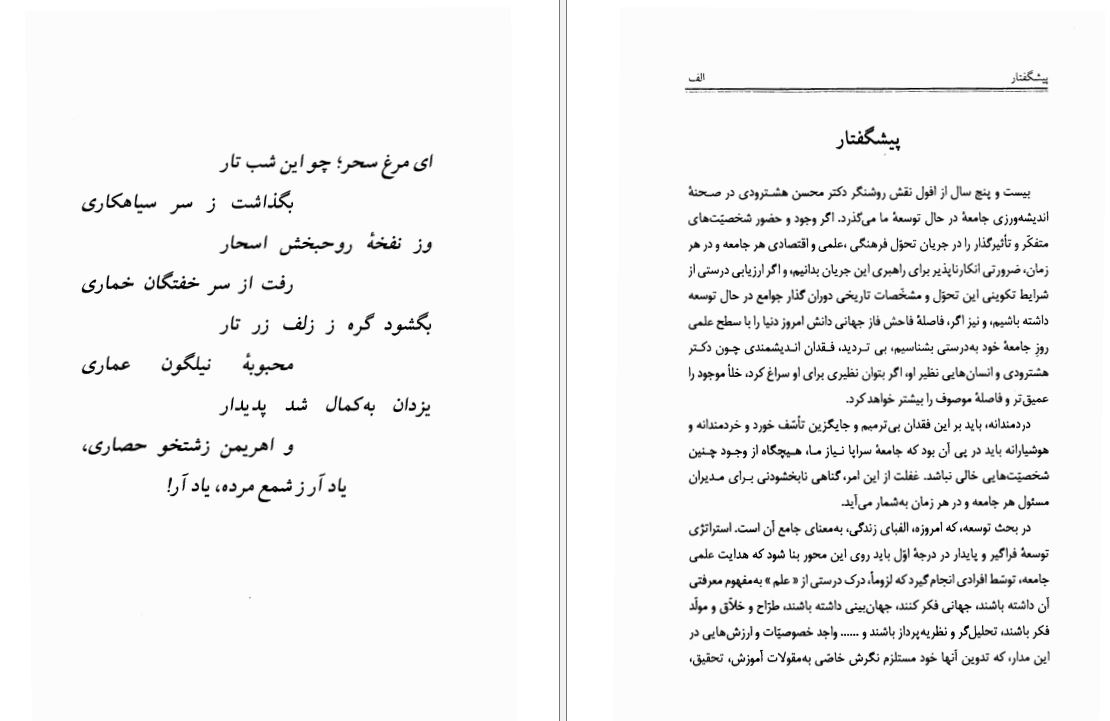 ای مرغ سحر؛ چو این شب تار
بگذاشت ز سر سیاهکاری
وز نفخهٔ روحبخش اسحار
رفت از سر خفتگان خماری
بگشود گره ز زلف زر تار
محبوبهٔ نیلگون عماری
یزدان به‌کمال شد پدیدار
و اهریمن زشتخو حصاری،
یاد آر ز شمع مرده، یاد آر!
پیشگفتار الف
پیشگفتار
بیست و پنج سال از افول نقش روشنگر دکتر محسن هشترودی در صحنهٔ
اندیشه‌ورزی جامعهٔ در حال توسعهٔ ما می‌گذرد. اگر وجود و حضور شخصیّت‌های
متفکّر و تأثیرگذار را در جریان تحوّل فرهنگی ،علمی و اقتصادی هر جامعه و در هر
زمان، ضرورتی انکارناپذیر برای راهبری این جریان بدانیم، و اگر ارزیابی درستی از
شرایط تکوینی این تحوّل و مشخّصات تاریخی دوران گذار جوامع در حال توسعه
داشته باشیم، و نیز اگر، فاصلهٔ فاحش فاز جهانی دانش امروز دنیا را با سطح علمی
روزِ جامعهٔ خود به‌درستی بشناسیم، بی تردید، فقدان اندیشمندی چون دکتر
هشترودی و انسان‌هایی نظیر او، اگر بتوان نظیری برای او سراغ کرد، خلأ موجود را
عمیق‌تر و فاصلهٔ موصوف را بیشتر خواهد کرد.
دردمندانه، باید بر این فقدان بی‌ترمیم و جایگزین تأسّف خورد و خردمندانه و
هوشیارانه باید در پی آن بود که جامعهٔ سراپا نیاز ما، هیچگاه از وجود چنین
شخصیّت‌هایی خالی نباشد. غفلت از این امر، گناهی نابخشودنی برای مدیران
مسئول هر جامعه و در هر زمان به‌شمار می‌آید.
در بحث توسعه، که امروزه، الفبای زندگی، به‌معنای جامع آن است. استراتژی
توسعهٔ فراگیر و پایدار در درجهٔ اوّل باید روی این محور بنا شود که هدایت علمی
جامعه، توسّط افرادی انجام گیرد که لزوماً، درک درستی از « علم » به‌مفهوم معرفتی
آن داشته باشند، جهانی فکر کنند، جهان‌بینی داشته باشند، طرّاح و خلاّق و مولّد
فکر باشند، تحلیل‌گر و نظریه‌پرداز باشند و ...... واجد خصوصیّات و ارزش‌هایی در
این مدار، که تدوین آنها خود مستلزم نگرش خاصّی به‌مقولات آموزش، تحقیق،